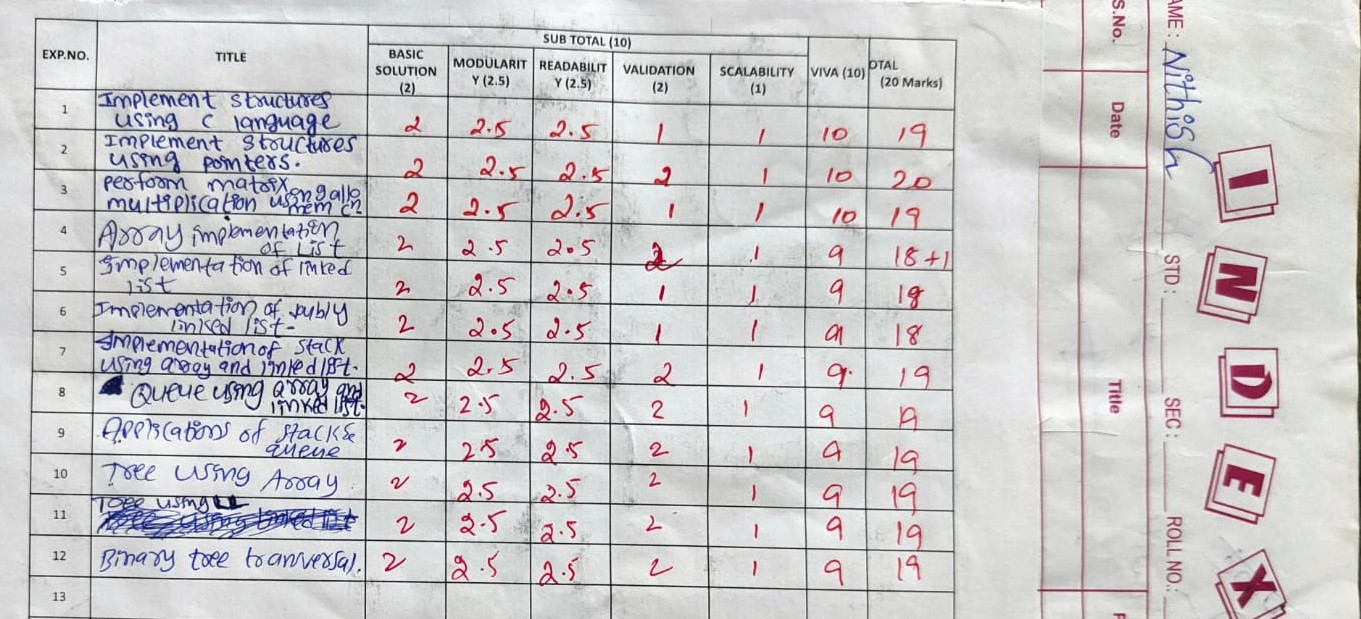 SUB TOTAL (10)
EXP.NO. TITLE BASIC SOLUTION (2) MODULARIT Y (2.5) READABILIT Y (2.5) VALIDATION (2) SCALABILITY (1) VIVA (10) OTAL (20 Marks)
1 Implement structures
using C language 2 2.5 2.5 1 1 10 19
2 Implement structures
using pointers. 2 2.5 2.5 2 1 10 20
3 perform matrix
multiplication 2 2.5 2.5 1 1 10 19
4 Array implementation
of List 2 2.5 2.5 2 1 9 18+1
5 Implementation of linked
list 2 2.5 2.5 1 1 9 18
6 Implementation of doubly
linked list- 2 2.5 2.5 1 1 9 18
7 Implementation of stack
using array and linked list. 2 2.5 2.5 2 1 9. 19
8 Queue using array and
linked list. 2 2.5 2.5 2 1 9 19
9 Applications of stack &
queue 2 2.5 2.5 2 1 9 19
10 Tree using Array 2 2.5 2.5 2 1 9 19
11 Tree using LL
2 2.5 2.5 2 1 9 19
12 Binary tree tranversal. 2 2.5 2.5 2 1 9 19
13
INDEX
AME: Nithish STD: SEC: ROLL NO.:
S.No. Date Title